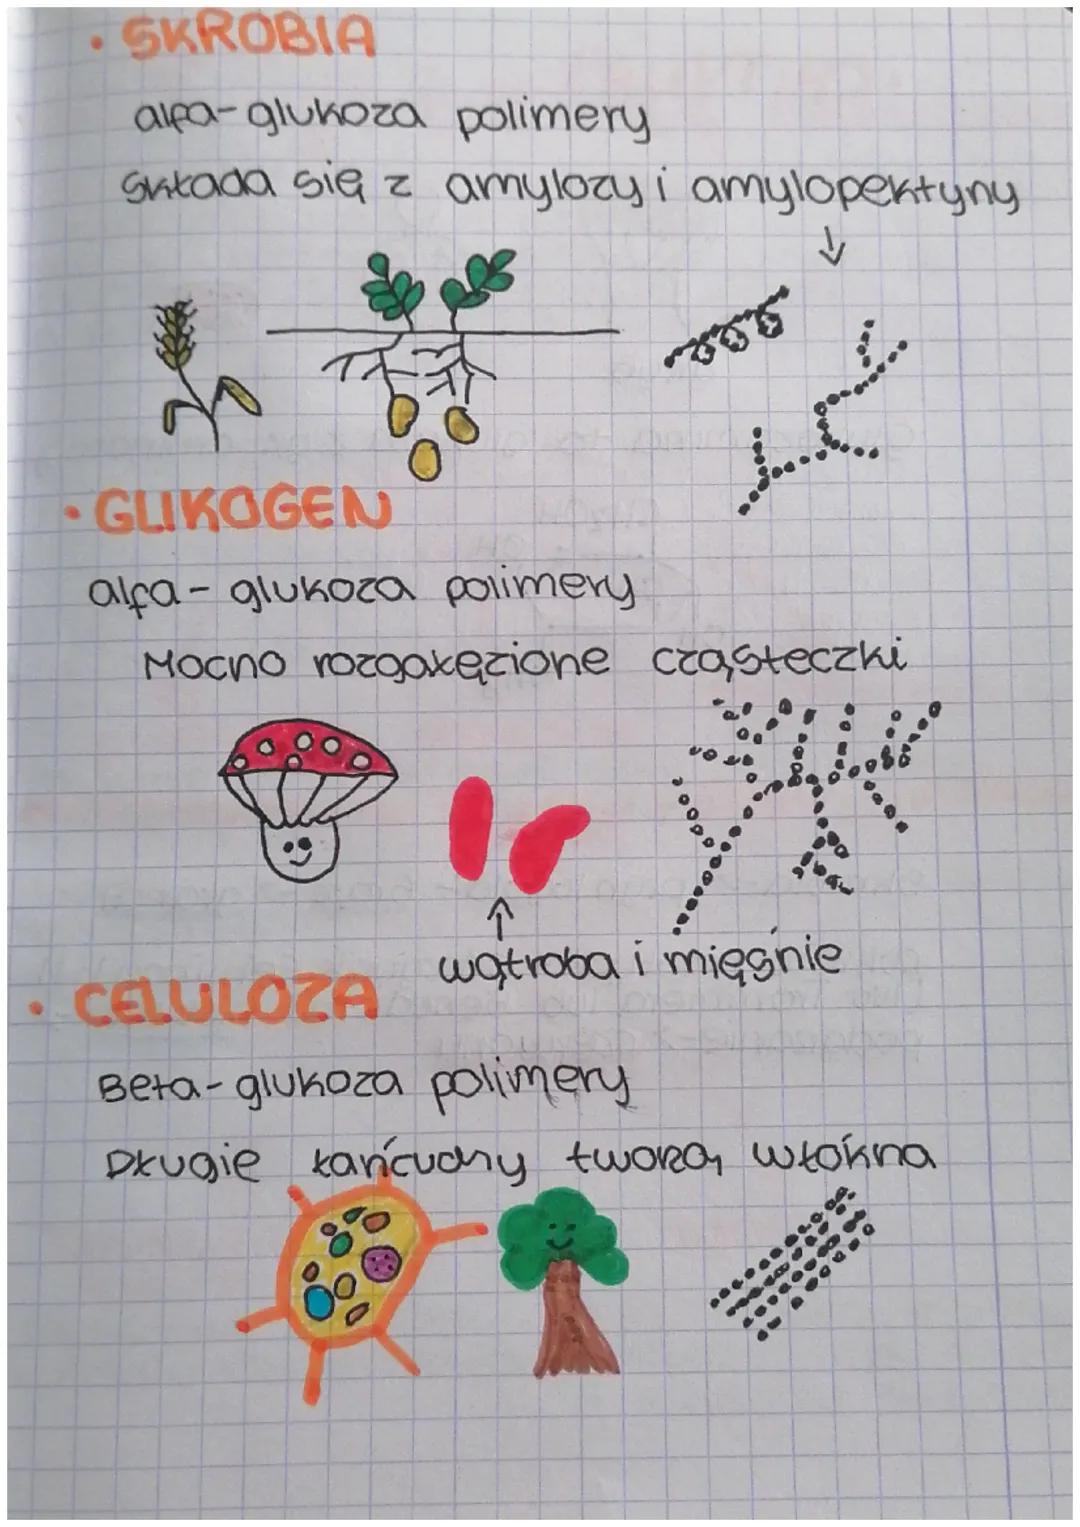 • SKROBIA
alfa-glukoza polimery
Składa się z amylozy i amylopektyny
• GLIKOGEN
alfa-glukoza polimery
Mocno rozgałęzione cząsteczki
wątroba i mięśnie
• CELULOZA
Beta-glukoza polimery
Długie łańcuchy tworzą włókna